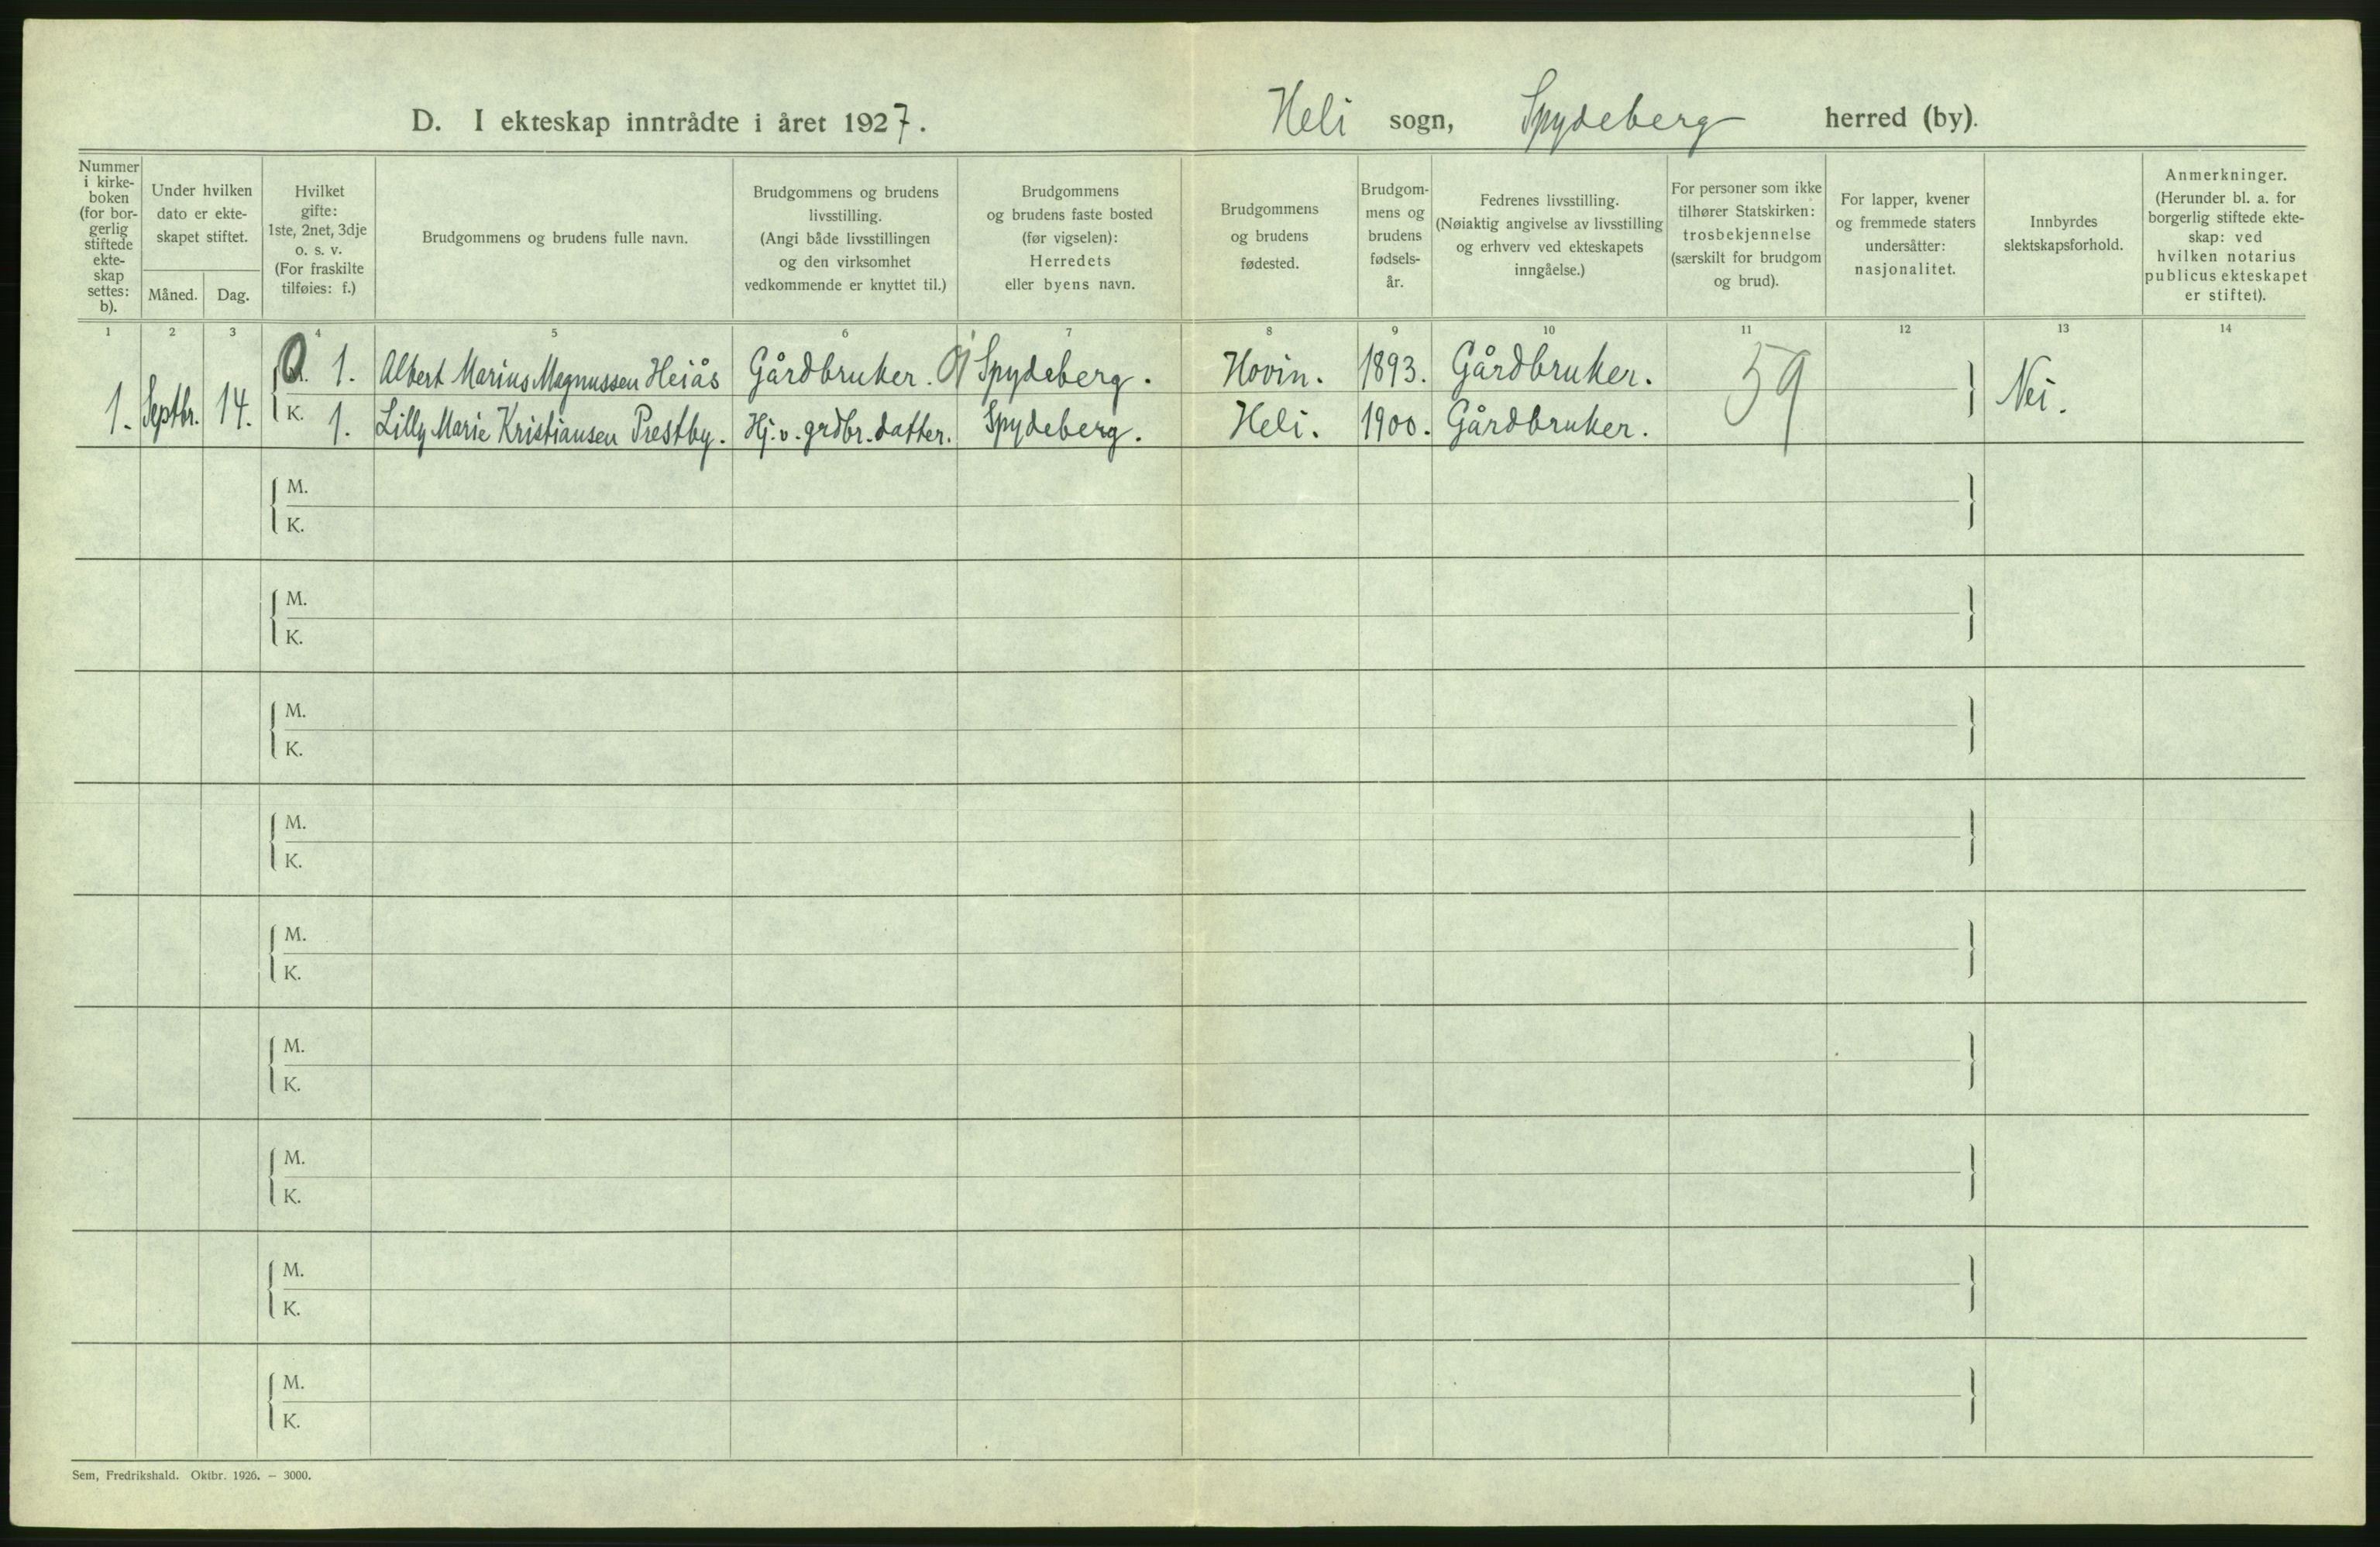 D. I ekteskap inntrådte i året 1927.
Heli sogn, Spydeberg herred (by).
Nummer
i kirke-
boken
(for bor-
gerlig
stiftede
ekte-
skap
settes:
b).
Under hvilken
dato er ekte-
skapet stiftet.
Måned.
Dag.
Hvilket
gifte:
1ste, 2net, 3dje
o. s. v.
(For fraskilte
tilføies: f.)
Brudgommens og brudens fulle navn.
Brudgommens og brudens
livsstilling.
(Angi både livsstillingen
og den virksomhet
vedkommende er knyttet til.)
Brudgommens
og brudens faste bosted
(før vigselen):
Herredets
eller byens navn.
Brudgommens
og brudens
fødested.
Brudgom-
mens og
brudens
fødsels-
år.
Fedrenes livsstilling.
(Nøiaktig angivelse av livsstilling
og erhverv ved ekteskapets
inngåelse.)
For personer som ikke
tilhører Statskirken:
trosbekjennelse
(særskilt for brudgom
og brud).
For lapper, kvener
og fremmede staters
undersåtter:
nasjonalitet.
Innbyrdes
slektskapsforhold.
Anmerkninger.
(Herunder bl. a. for
borgerlig stiftede ekte-
skap: ved
hvilken notarius
publicus ekteskapet
er stiftet).
1 2 3 4 5 6 7 8 9 10 11 12 13 14
1. Albert Marius Magnussen Heiås Gårdbruker. Spydeberg. Hovin. 1893. Gårdbruker. 59
1. Septbr. 14. Nei.
K. 1. Lilly Marie Kristiansen Prestby. Hj. v. grdbr. datter. Spydeberg. Heli. 1900. Gårdbruker.
M.
K.
M.
K.
M.
K.
M.
K.
M.
K.
M.
K.
M.
K.
M.
K.
M.
K.
Sem, Fredrikshald. Oktbr. 1926. — 3000.